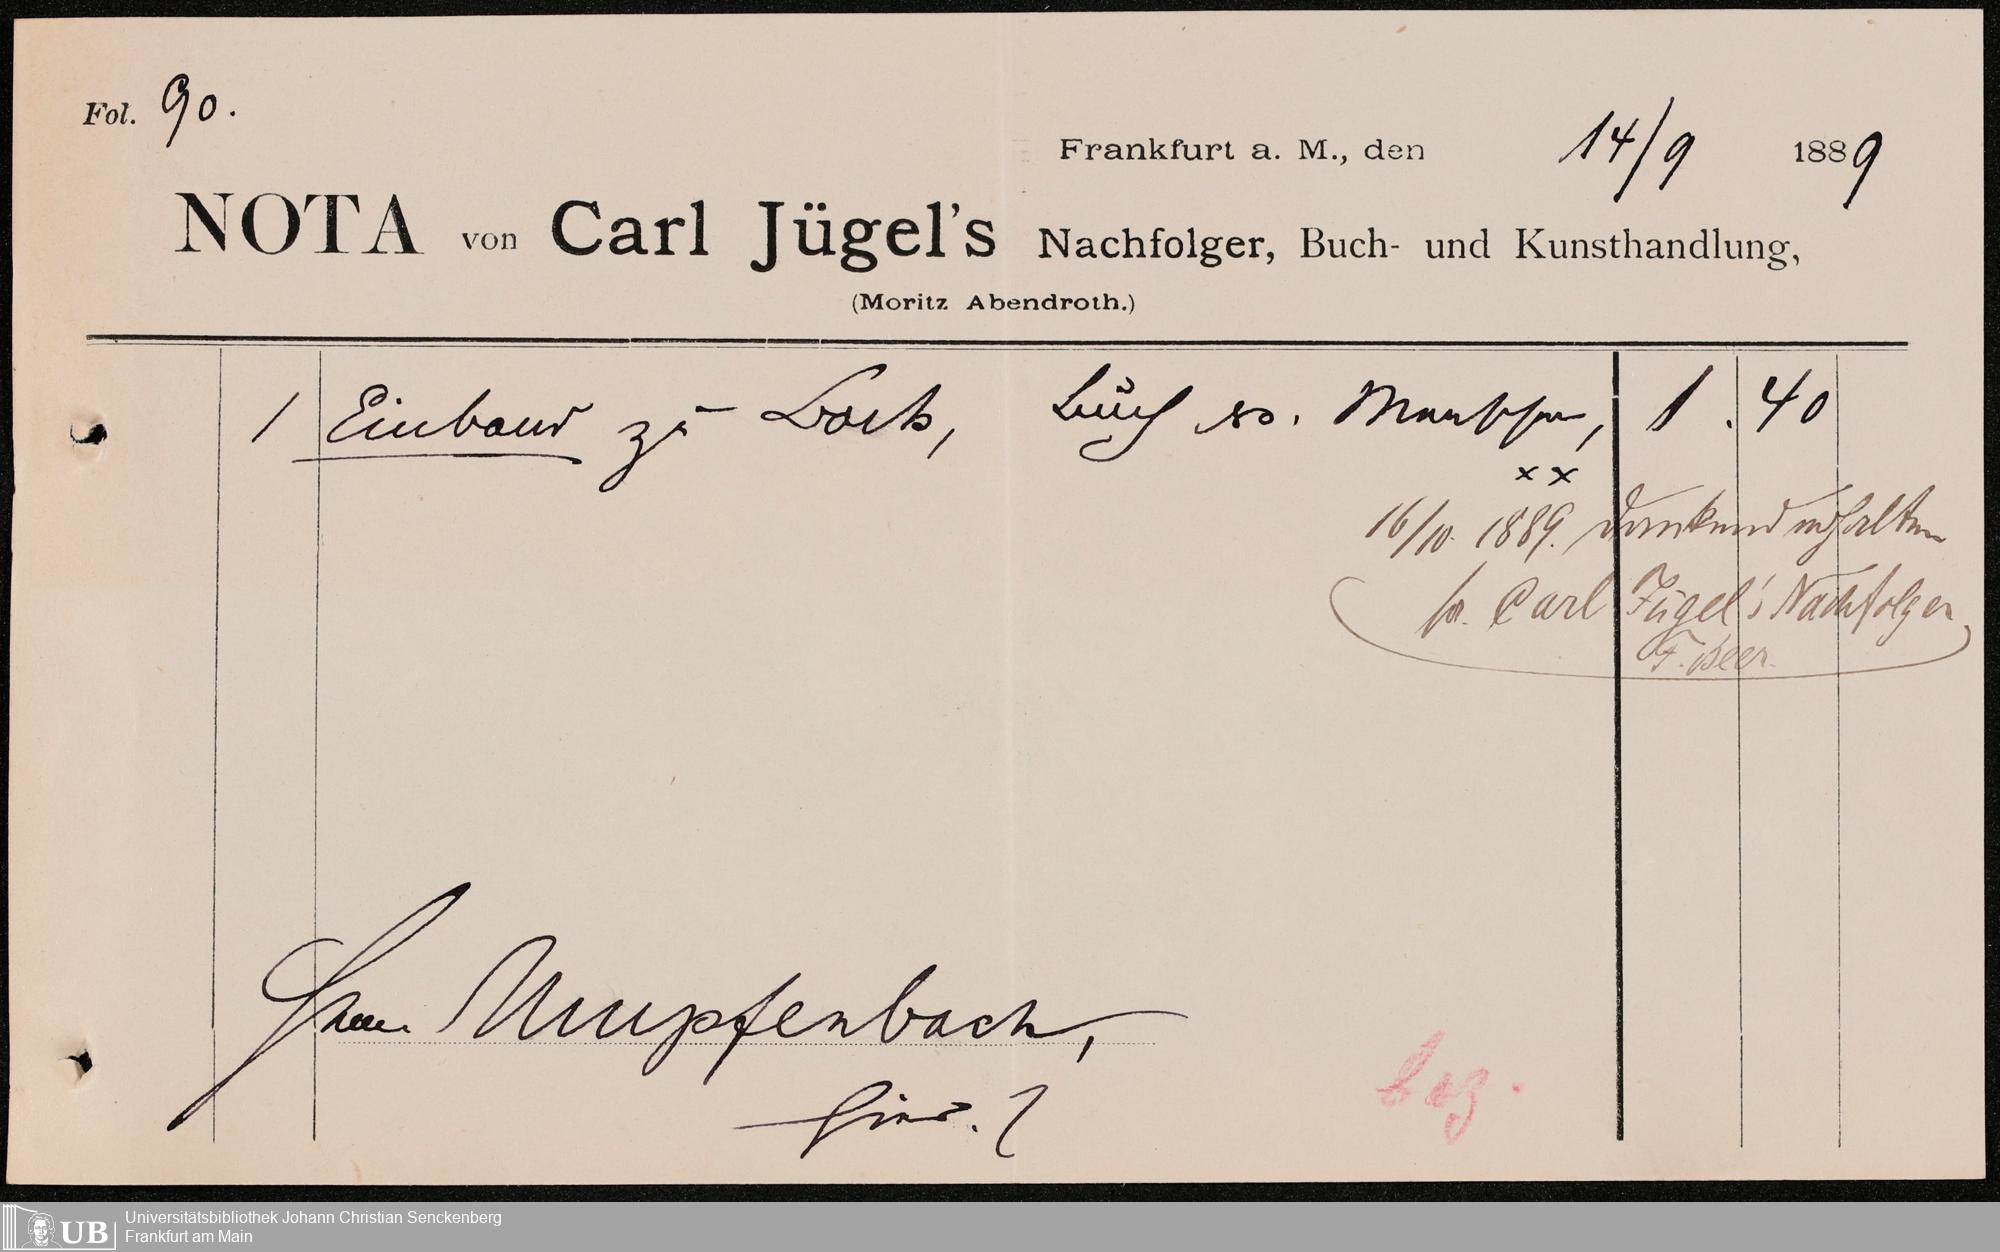 Fol. 90.
Frankfurt a. M., den 14/9 1889
NOTA von Carl Jügel's Nachfolger, Buch- und Kunsthandlung,
(Moritz Abendroth.)
1 Einband zu Buch 1.40
x x
16/10. 1889. Dankend erhalten
pr. Carl Jügel's Nachfolger
F. Beer.
Herrn Mupfenbach,
hier.
bez.
UB Universitätsbibliothek Johann Christian Senckenberg
Frankfurt am Main